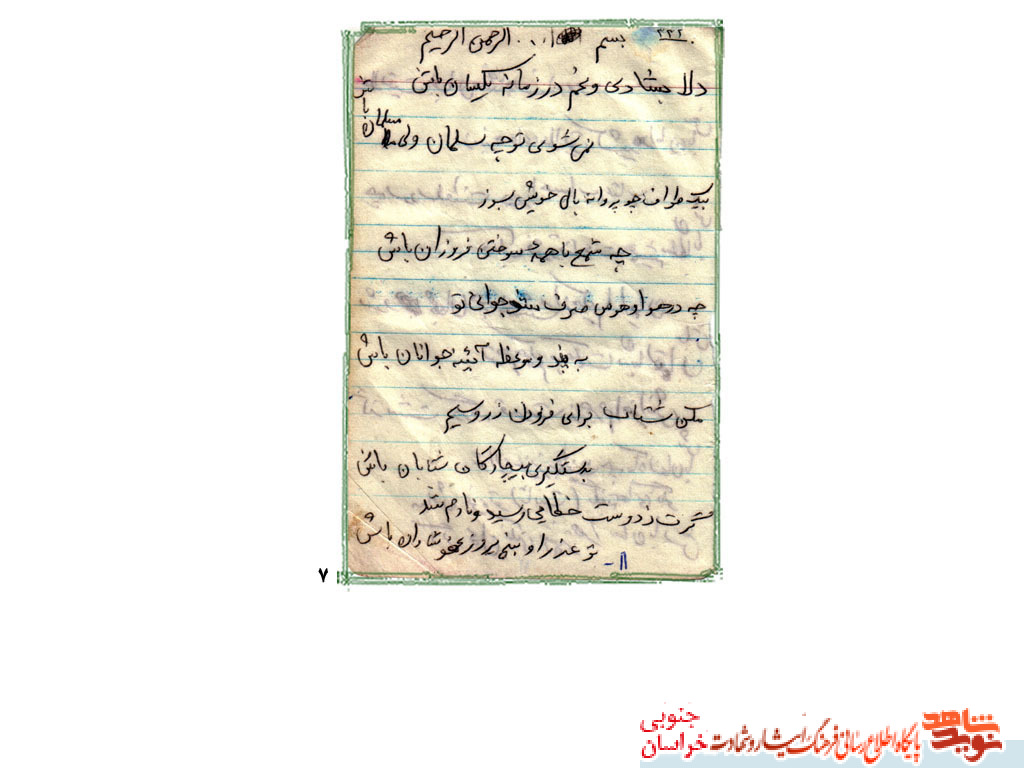 ۲۲۲
بسم ا... الرحمن الرحیم
دلا بشادی و غم در زمانه یکسان باش
نمی شوی تو چه سلمان ولی مسلمان باش
بیک طواف چو پروانه بال خویش بسوز
چه شمع با همه سوختن فروزان باش
چه در هوا و هوس صرف شد جوانی تو
به پند و موعظه آئینه جوانان باش
مکن شتاب برای فزودن زر و سیم
بدستگیری بیچارگان شتابان باش
گرت ز دوست خطایی رسید و نادم شد
تو عذر او بپذیر و ز عفو شادان باش
۷
نوید شاهد
پایگاه اطلاع رسانی فرهنگ ایثار و شهادت
خراسان جنوبی